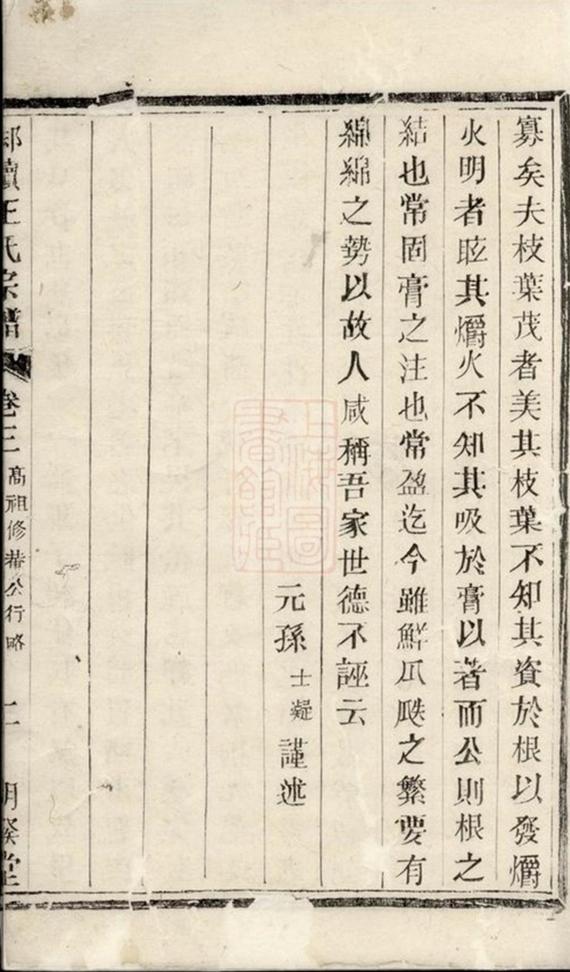 寡矣夫枝葉茂者美其枝葉不知其資於根以發爝
火明者眩其爝火不知其吸於膏以著而公則根之
結也常固膏之注也常盈迄今雖鮮瓜瓞之繁要有
綿綿之勢以故人咸稱吾家世德不誣云
元孫士凝謹述
續王氏宗譜
卷三
高祖修菴公行略
二